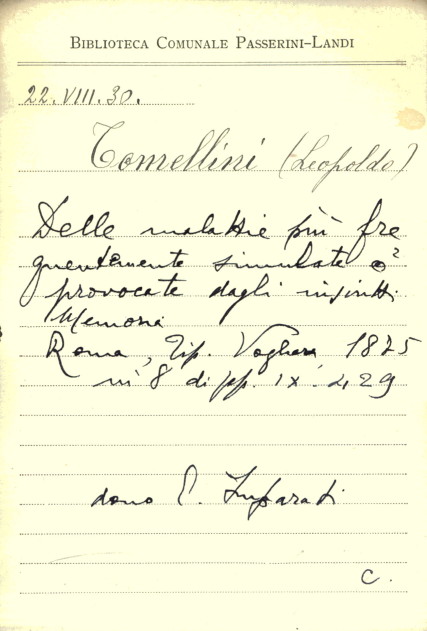 BIBLIOTECA COMUNALE PASSERINI-LANDI
22.VIII.30.
Tomellini (Leopoldo)
Delle malattie più fre
quentemente simulate o
provocate dagli inscritti.
Memoria
Roma, Tip. Voghera 1875
in 8° di pp. IX. 429
dono E. Imparati
C.